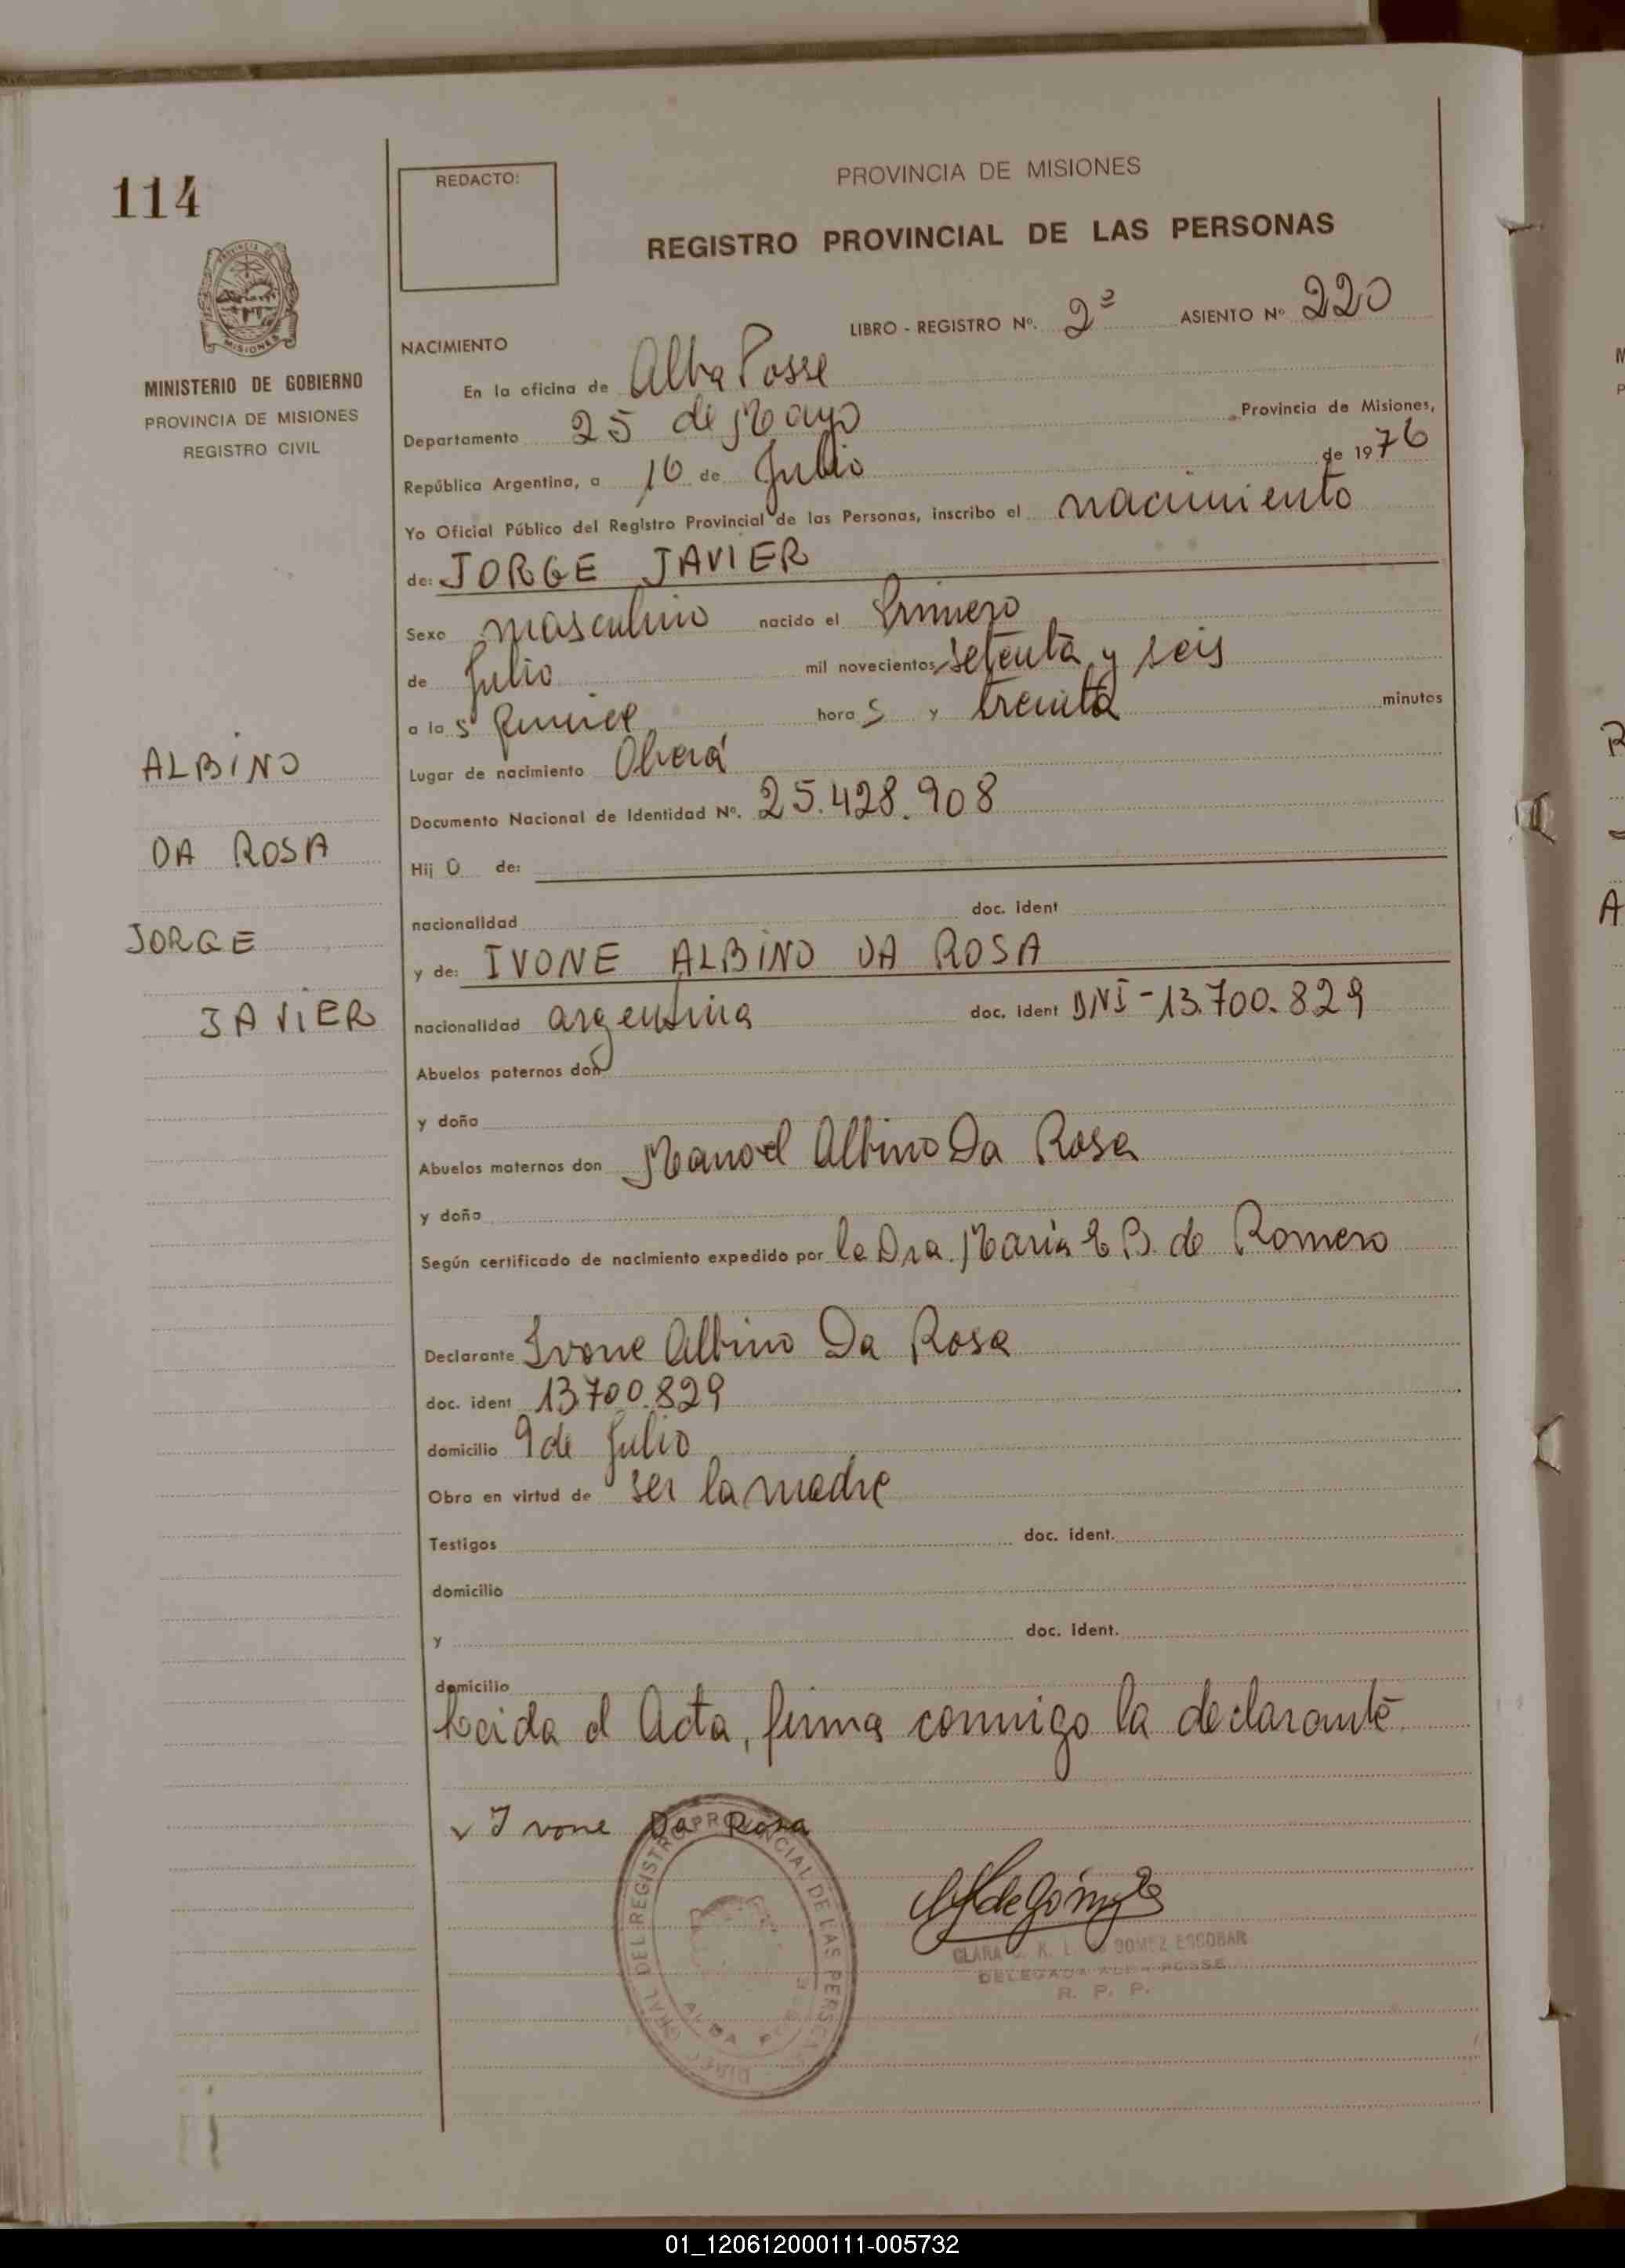 114
REDACTO:
PROVINCIA DE MISIONES
REGISTRO PROVINCIAL DE LAS PERSONAS
MINISTERIO DE GOBIERNO
PROVINCIA DE MISIONES
REGISTRO CIVIL
LIBRO - REGISTRO Nº. 2º ASIENTO Nº 220
NACIMIENTO
En la oficina de Alba Posse
Departamento 25 de Mayo Provincia de Misiones,
República Argentina, a 16 de Julio de 1976
Yo Oficial Público del Registro Provincial de las Personas, inscribo el nacimiento
de: JORGE JAVIER
Sexo masculino nacido el Primero
de Julio mil novecientos setenta y seis
a la s quince hora s y treinta minutos
Lugar de nacimiento Oberá
Documento Nacional de Identidad Nº. 25.428.908
Hij o de:
nacionalidad doc. ident
y de: IVONE ALBINO DA ROSA
nacionalidad argentina doc. ident DNI-13.700.829
ALBINO
DA ROSA
JORGE
JAVIER
Abuelos paternos don
y doña
Abuelos maternos don Manoel Albino Da Rosa
y doña
Según certificado de nacimiento expedido por la Dra. María E B. de Romero
Declarante Ivone Albino Da Rosa
doc. ident 13.700.829
domicilio 9 de Julio
Obra en virtud de ser la madre
Testigos doc. ident.
domicilio
y doc. ident.
domicilio
Leida el Acta, firma conmigo la declarante
Ivone Da Rosa
DIREC GRAL DEL REGISTRO PROVINCIAL DE LAS PERSONAS
ALBA POSSE
de Gómez
CLARA K. L. GOMEZ ESCOBAR
DELEGADA ALBA POSSE
R. P. P.
01_120612000111-005732